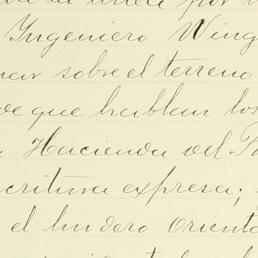 Ingeniero Wing
nar sobre el terreno
que hablan los
Hacienda del
critura expresa;
el lindero Orient